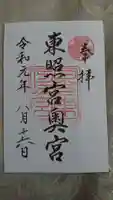 奉拝
東照宮奥宮
令和元年 八月十六日